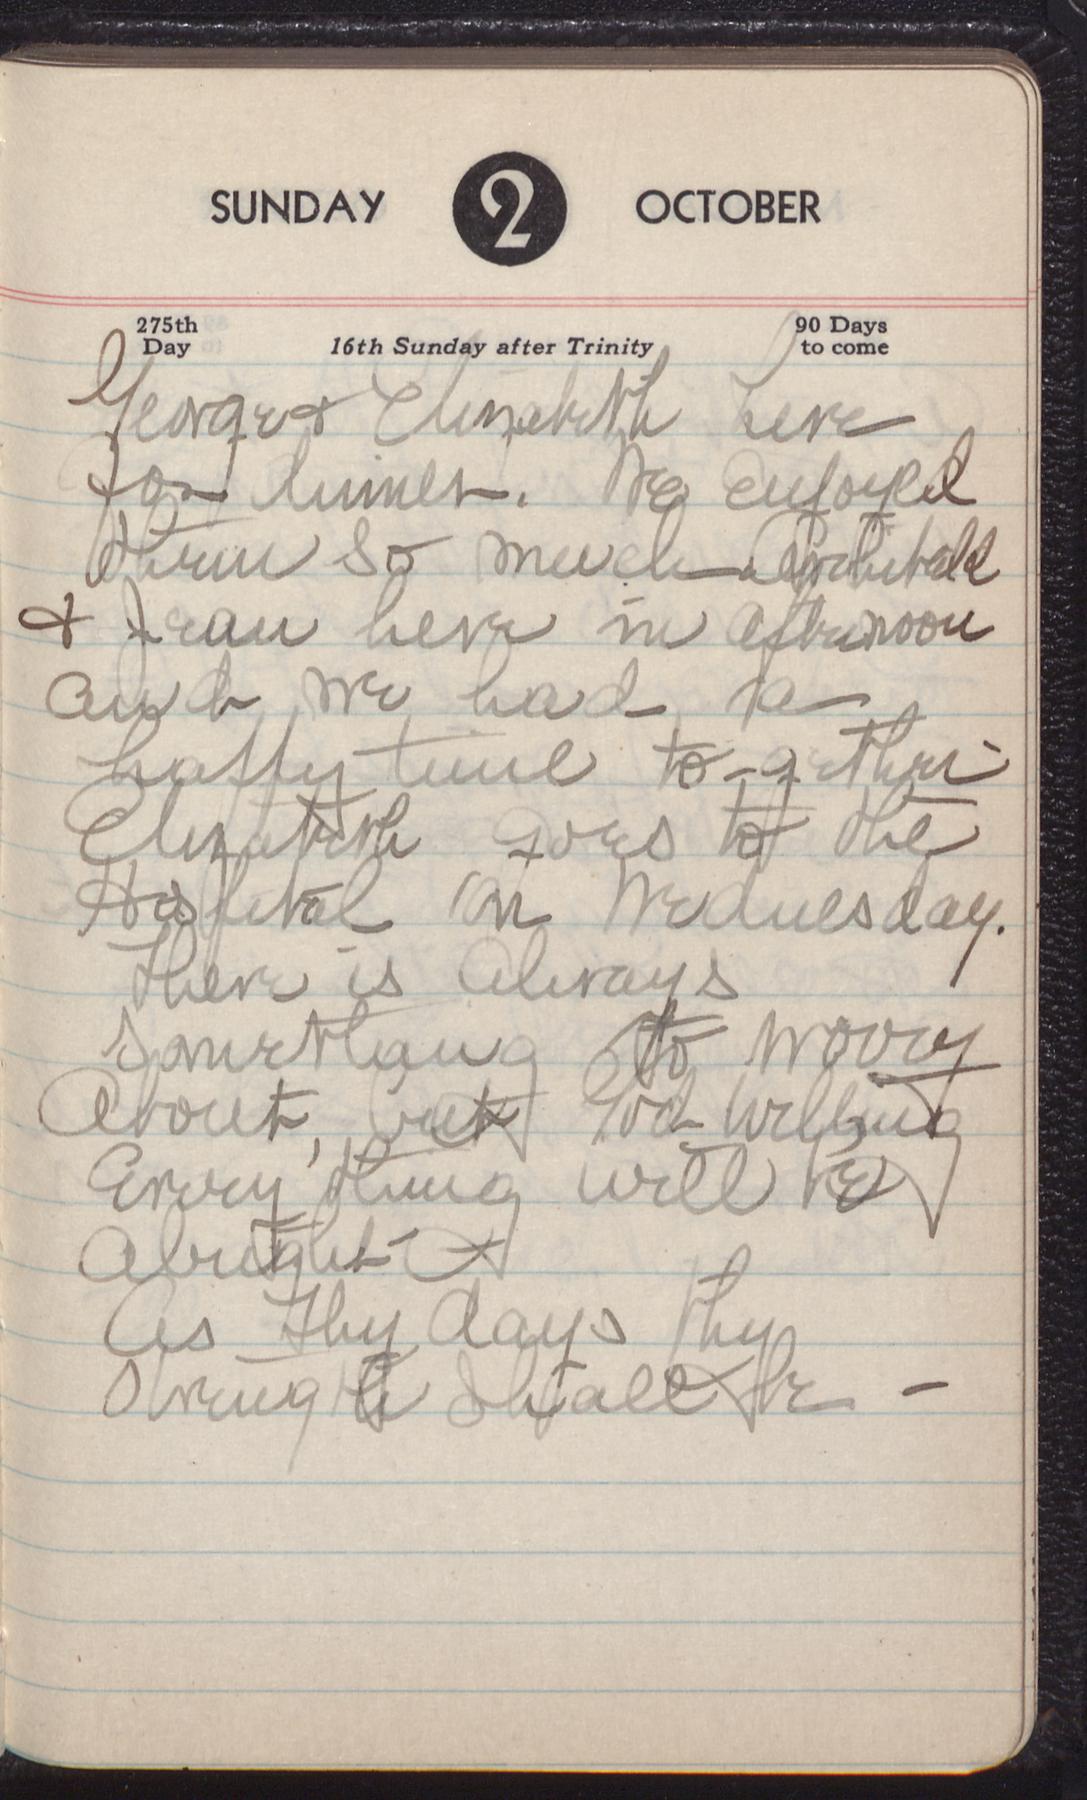 SUNDAY 2 OCTOBER
275th Day 16th Sunday after Trinity 90 Days to come
George & Elizabeth here
for dinner. We enjoyed
them so much - Archibald
& Jean here in afternoon
and we had a
happy time to-gether -
Elizabeth goes to the
Hospital on Wednesday.
There is always
something to worry
about, but God willing
Every thing will be
alright -
As Thy days Thy
strength shall be -